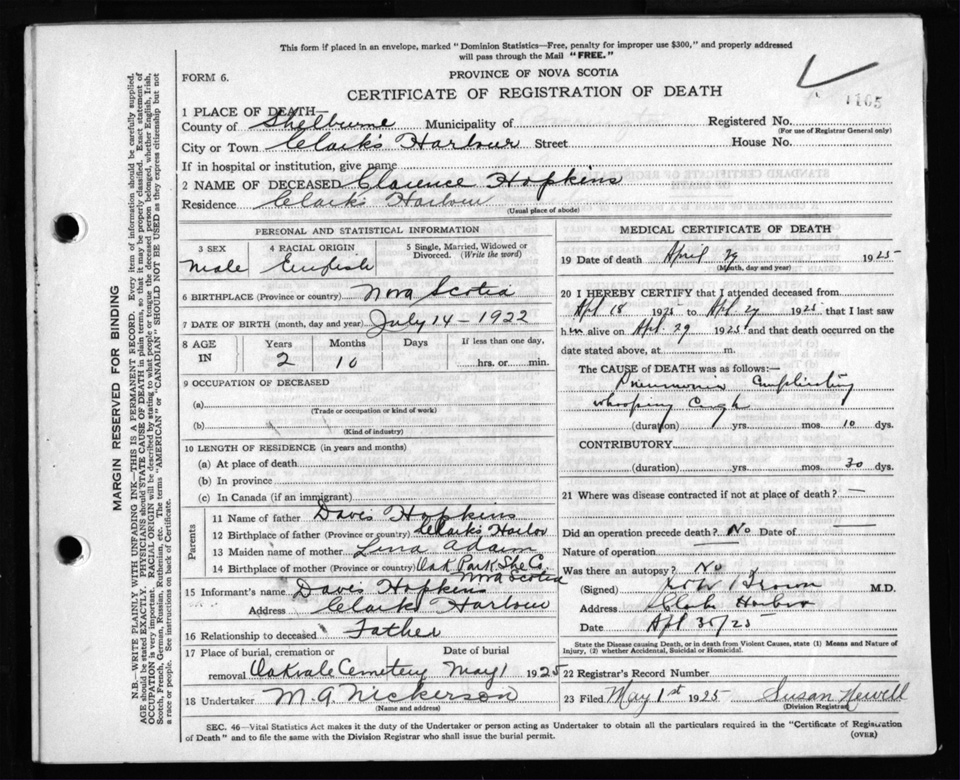 This form if placed in an envelope, marked "Dominion Statistics—Free, penalty for improper use $300," and properly addressed
will pass through the Mail "FREE."
FORM 6.
PROVINCE OF NOVA SCOTIA
CERTIFICATE OF REGISTRATION OF DEATH
1105
1 PLACE OF DEATH—
County of Shelburne Municipality of Registered No.
(For use of Registrar General only)
City or Town Clark's Harbour Street House No.
If in hospital or institution, give name
2 NAME OF DECEASED Clarence Hopkins
Residence Clark's Harbour
(Usual place of abode)
PERSONAL AND STATISTICAL INFORMATION
3 SEX 4 RACIAL ORIGIN 5 Single, Married, Widowed or Divorced. (Write the word)
Male English
6 BIRTHPLACE (Province or country) Nova Scotia
7 DATE OF BIRTH (month, day and year) July 14 - 1922
8 AGE IN Years Months Days If less than one day,
2 10 hrs. or min.
9 OCCUPATION OF DECEASED
(a)
(Trade or occupation or kind of work)
(b)
(Kind of industry)
10 LENGTH OF RESIDENCE (in years and months)
(a) At place of death
(b) In province
(c) In Canada (if an immigrant)
Parents
11 Name of father Davis Hopkins
12 Birthplace of father (Province or country) Clark's Harbor
13 Maiden name of mother Lina Adam
14 Birthplace of mother (Province or country) Oak Park She Co.
Nova Scotia
15 Informant's name Davis Hopkins
Address Clarks Harbour
16 Relationship to deceased Father
17 Place of burial, cremation or removal Date of burial
Oakvale Cemetery May 1 1925
18 Undertaker M. A. Nickerson
(Name and address)
MEDICAL CERTIFICATE OF DEATH
19 Date of death April 29 1925
(Month, day and year)
20 I HEREBY CERTIFY that I attended deceased from
Apl 18 1925 to Apl 29 1925 that I last saw
him alive on Apl 29 1925 and that death occurred on the
date stated above, at m.
The CAUSE of DEATH was as follows:—
Pneumonia Complicating
whooping Cough
(duration) yrs. mos. 10 dys.
CONTRIBUTORY
(duration) yrs. mos. 30 dys.
21 Where was disease contracted if not at place of death? —
Did an operation precede death? No Date of —
Nature of operation —
Was there an autopsy? No
(Signed) Brown M.D.
Address Clarks Harbor
Date Apl 30/25
State the Disease Causing Death, or in death from Violent Causes, state (1) Means and Nature of
Injury, (2) whether Accidental, Suicidal or Homicidal.
22 Registrar's Record Number
23 Filed May 1st 1925 Susan Newell
(Division Registrar)
SEC. 46—Vital Statistics Act makes it the duty of the Undertaker or person acting as Undertaker to obtain all the particulars required in the "Certificate of Registration
of Death" and to file the same with the Division Registrar who shall issue the burial permit.
(OVER)
MARGIN RESERVED FOR BINDING
N.B.—WRITE PLAINLY WITH UNFADING INK—THIS IS A PERMANENT RECORD. Every item of information should be carefully supplied.
AGE should be stated EXACTLY. PHYSICIANS should STATE CAUSE OF DEATH in plain terms, so that it may be properly classified. Exact statement of
OCCUPATION is very important. RACIAL ORIGIN will be described by stating to what people or tongue the deceased person belonged, whether English, Irish,
Scotch, French, German, Russian, Ruthenian, etc. The terms "AMERICAN" or "CANADIAN" SHOULD NOT BE USED as they express citizenship but not
a race or people. See instructions on back of Certificate.